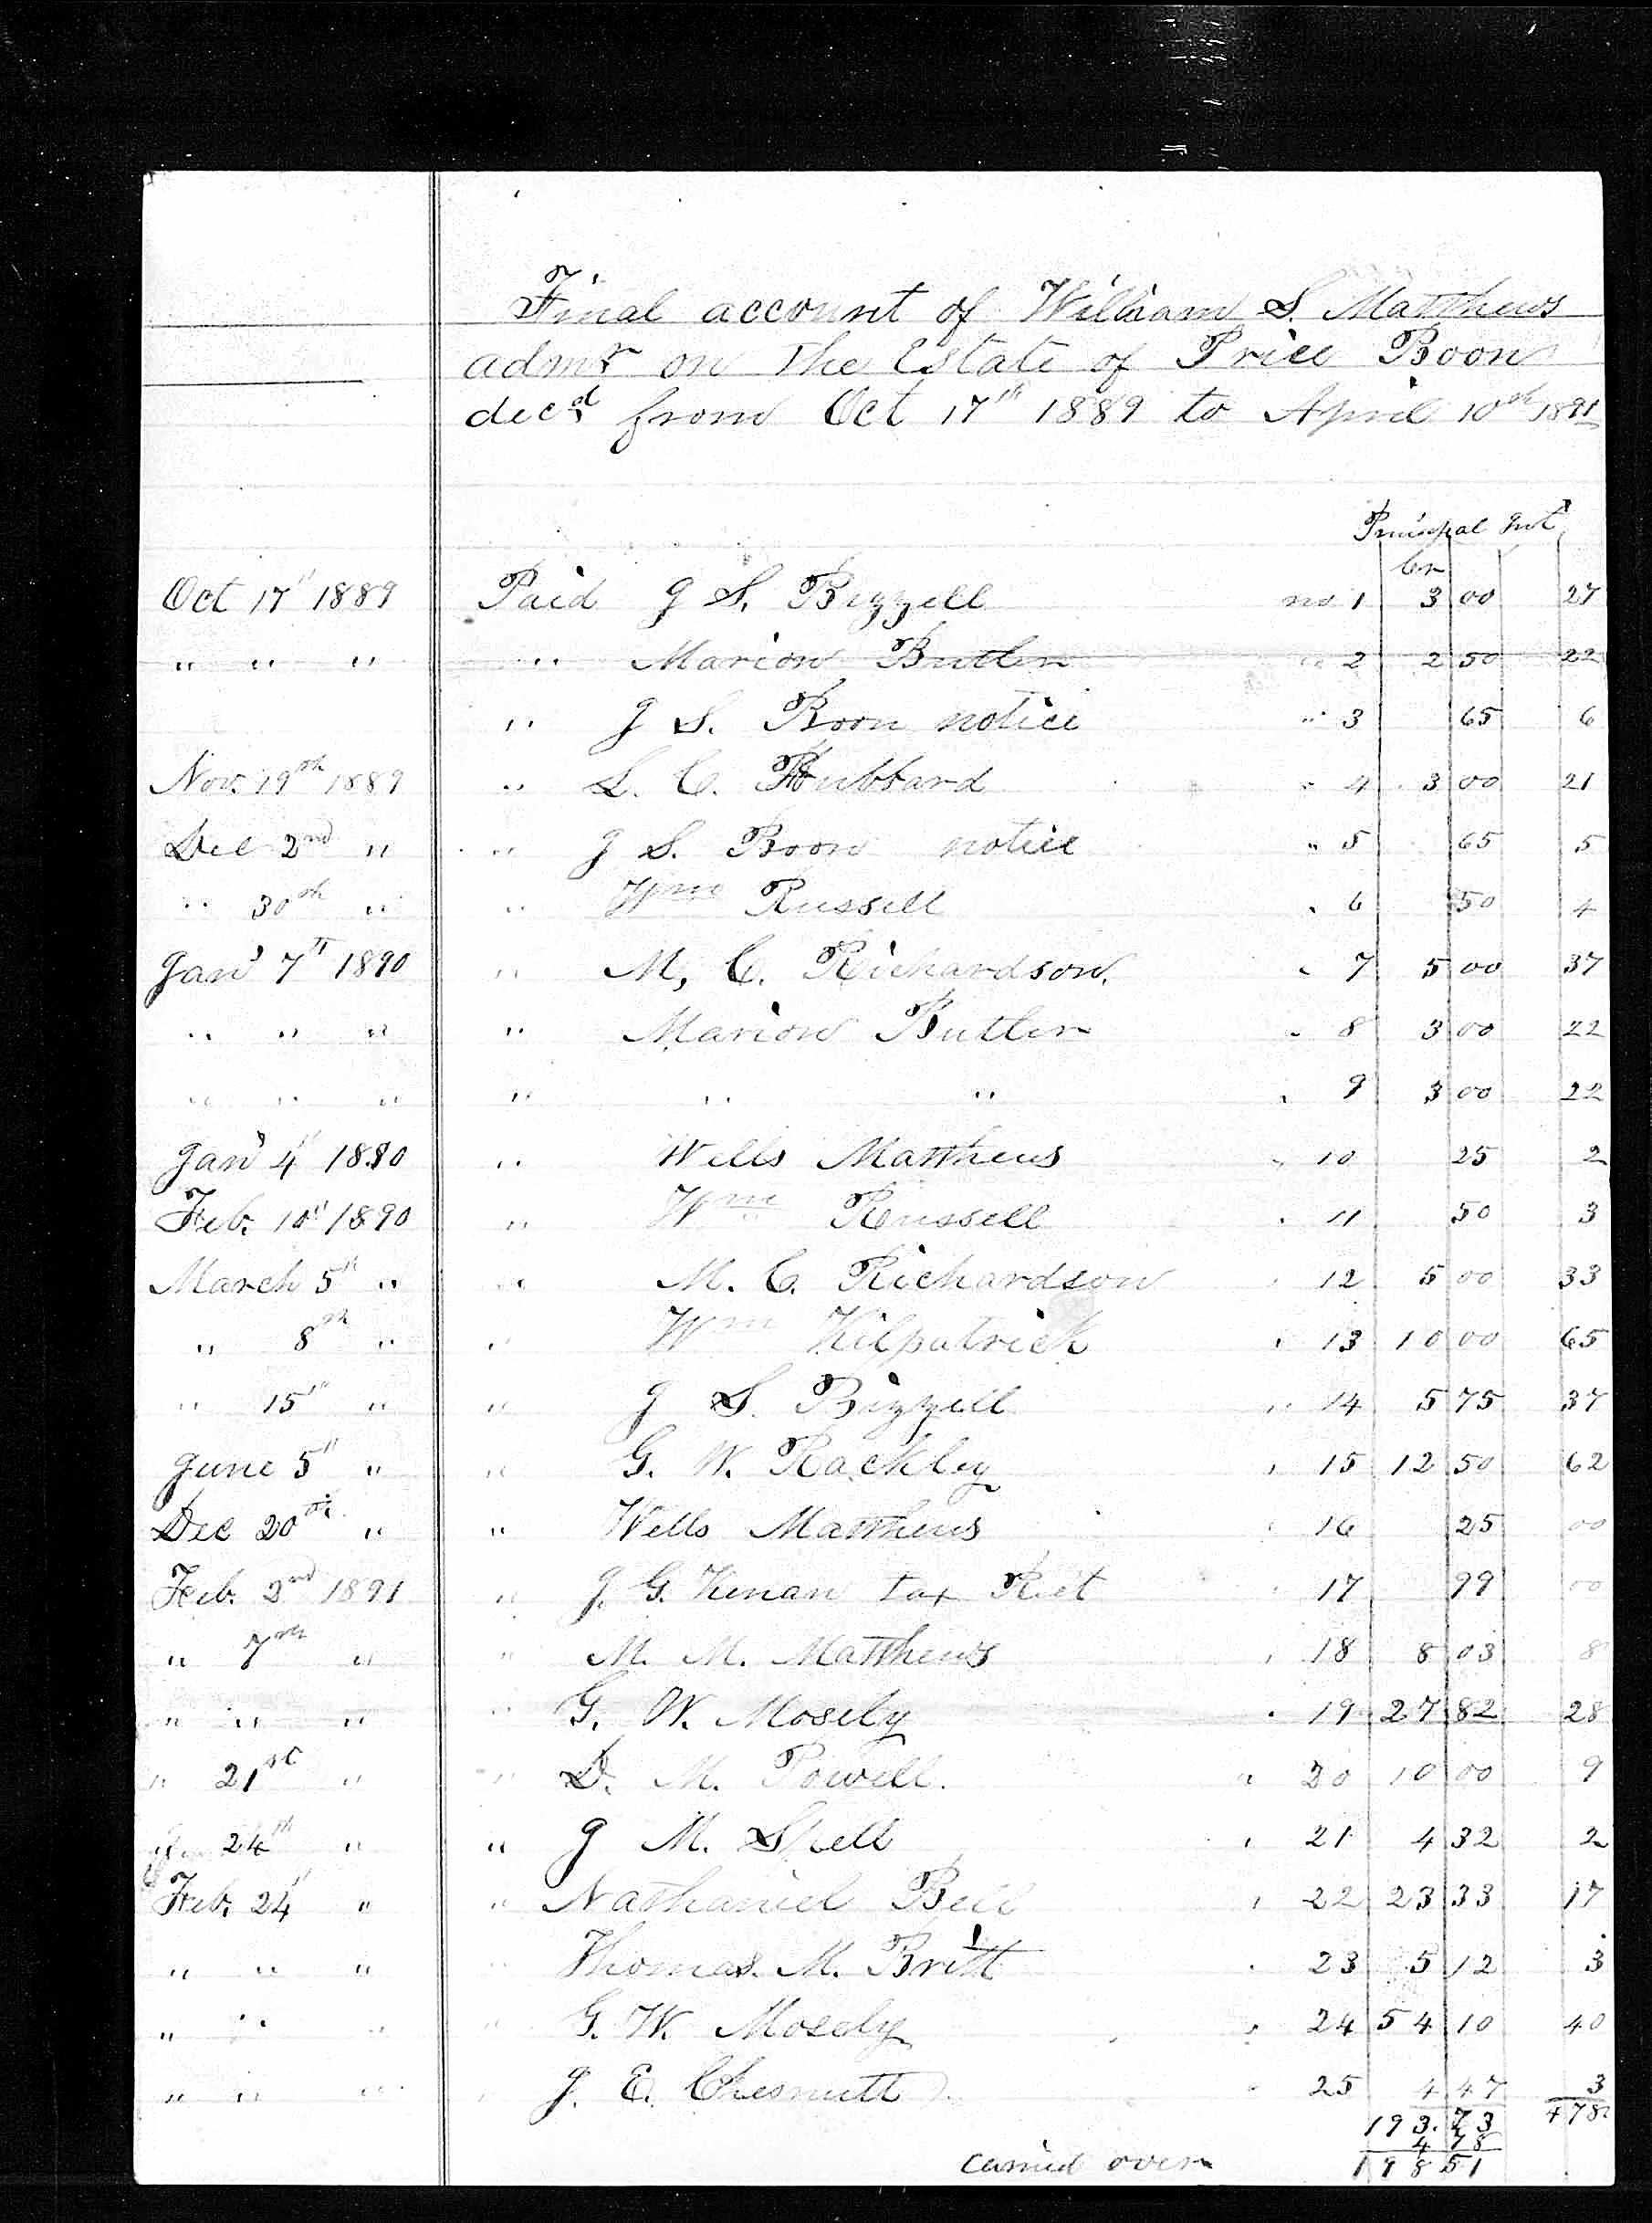 Final account of William S. Matthews
admr on the Estate of Price Boon
decd from Oct 17th 1889 to April 10th 1891
Principal Int
Oct 17" 1889 Paid J S. Bizzell no 1 3 00 27
" " " " Marion Butler " 2 2 50 22
" J S. Boon notice " 3 65 6
Nov. 19th 1889 " L. C. Hubbard " 4 3 00 21
Dec 2nd " " J S. Boon notice " 5 65 5
" 30th " " Wm Russell " 6 50 4
Jany 7th 1890 " M, C. Richardson. " 7 5 00 37
" " " " Marion Butler " 8 3 00 22
" " " " " " " 9 3 00 22
Jany 4" 1890 " Wells Matthews " 10 25 2
Feb. 10" 1890 " Wm Russell " 11 50 3
March 5" " " M. C. Richardson " 12 5 00 33
" 8th " " Wm Kilpatrick " 13 10 00 65
" 15th " " J S. Bizzell " 14 5 75 37
June 5" " " G. W. Rackley " 15 12 50 62
Dec 20th " " Wells Matthews " 16 25 00
Feb. 2nd 1891 " J. G. Kenan tax Rict " 17 99 00
" 7th " " M. M. Matthews " 18 8 03 8
" " " " G. W. Mosely " 19 27 82 28
" 21st " " D. M. Powell. " 20 10 00 9
" 24th " " J M. Spell " 21 4 32 2
Feb. 24" " " Nathaniel Bell " 22 23 33 17
" " " " Thomas. M. Britt " 23 5 12 3
" " " " G. W. Mosely " 24 54 10 40
" " " " J. E. Chesnutt " 25 4 47 3
193.73 478
4 78
carried over 198 51